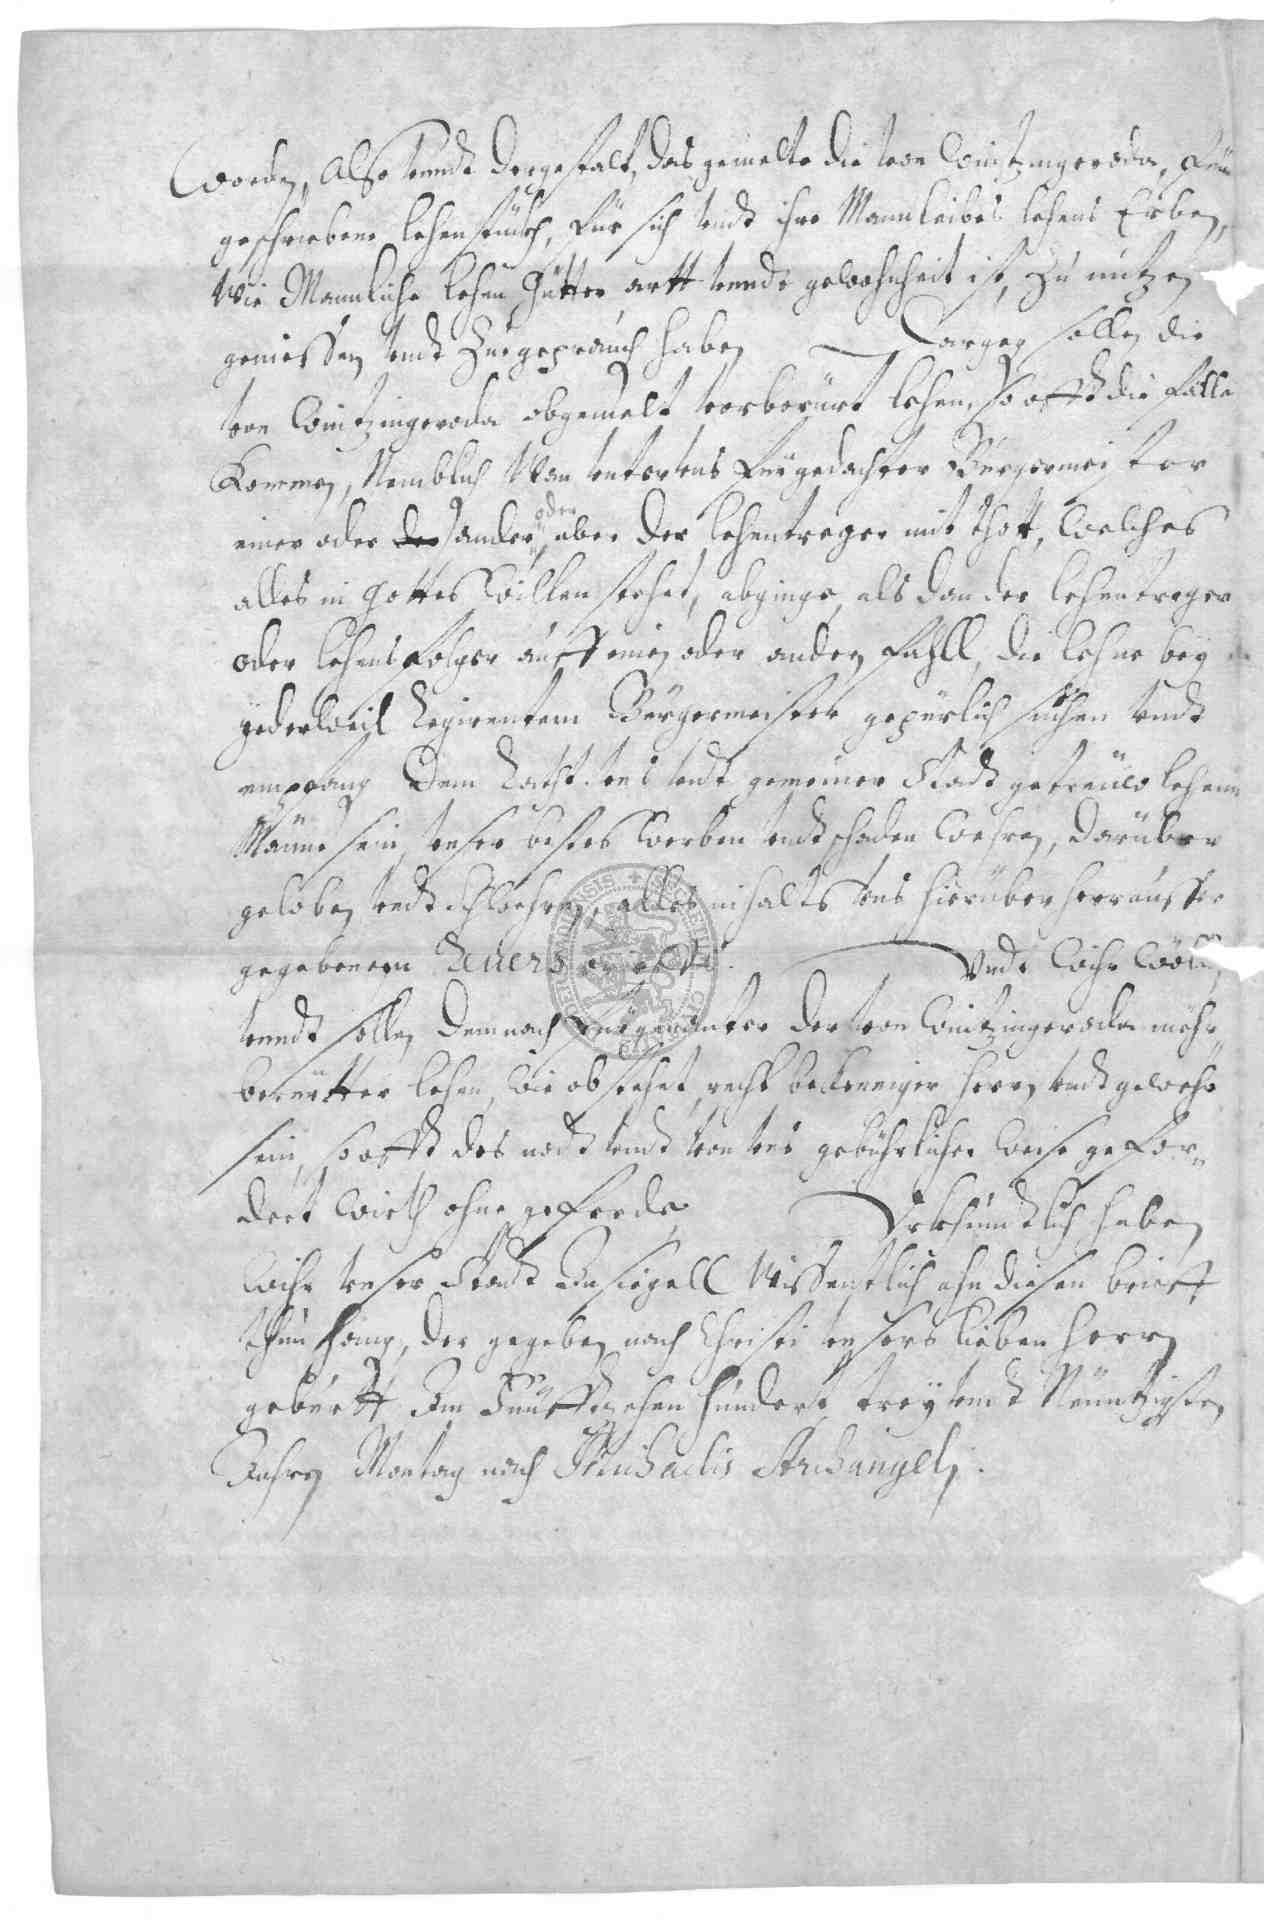 worden, Also vnndt dergestalt, das gemelte die von Wintzingeroda, für
geschriebene lehenstück, für sich vndt ihre Mannleibes lehens Erben,
wie Mannliche lehen Gütter artt vnnde gewohnheit ist, zu nutzen
geniessen vndt zuegeprauch haben Dargegen sollen die
von Wintzingeroda obgemelt vorberürt lehen, so offt die Fälle
kommen, Nemblich wan vnter vns fürgedachter Bürgermeister
einer oder der ander, oder aber der lehentreger mit thott, welches
alles in Gottes Willen stehet, abginge, als dan der lehentreger
oder lehens folger auff einen oder andern fahll, die lehne bey
yederweil Regirentem Bürgermeister gepürlich suchen vndt
empfangen Dem Rath vnd gemeiner Stadt getreuwe lehenn
Männe sein, vnser bestes werben vndt schaden wehren, darüber
geloben vndt schwehren, alles inhalts vns hierüber herausser
gegebenem Reuers
Vndt wihr wöllen
vnndt sollen demnach fürgenanter der von Wintzingeroda mehr
berürtter lehen, wie obstehet, recht bekenniger herr vndt gewehr
sein, so offt des nodt vndt von vns gebührlicher weise gefor
dert wirth ohne geferde Vrkhundtlich haben
wihr vnser Stadt Insiegell wissentlich ahn diesen brieff
thun hangen, der gegeben nach Christi vnsers lieben herrn
geburtt Im Fünffzehen hundert, drey vndt Neuntzigsten
Jahren Montag nach Michaelis Archangeli.